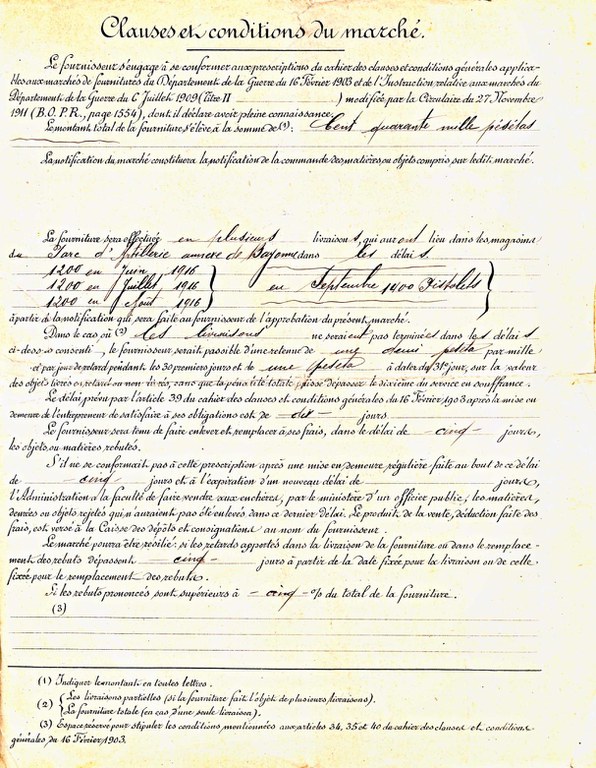 Clauses et conditions du marché.
Le fournisseur s'engage à se conformer aux prescriptions du cahier des clauses et conditions générales applica-
bles aux marchés de fournitures du Département de la Guerre du 16 Février 1903 et de l'Instruction relative aux marchés du
Département de la Guerre du 6 Juillet 1909 (titre II ) modifiée par la Circulaire du 27 Novembre
1911 (B.O.P.R., page 1554), dont il déclare avoir pleine connaissance.
Le montant total de la fourniture s'élève à la somme de (1): Cent quarante mille pésétas
La notification du marché constituera la notification de la commande des matières ou objets compris sur ledit marché.
La fourniture sera effectuée en plusieurs livraisons, qui auront lieu dans les magasins
du Parc d'Artillerie annexe de Bayonne dans les délais
1200 en Juin 1916
1200 en Juillet 1916 en Septembre 1400 Pistolets
1200 en Août 1916
à partir de la notification qui sera faite au fournisseur de l'approbation du présent marché.
Dans le cas où (2) les livraisons ne seraient pas terminées dans les délais
ci-dessus consenti, le fournisseur serait passible d'une retenue de une demi peseta par mille
et par jour de retard pendant les 30 premiers jours et de une peseta à dater du 31e jour, sur la valeur
des objets livrés en retard ou non livrés, sans que la pénalité totale puisse dépasser le sixième du service en souffrance.
Le délai prévu par l'article 39 du cahier des clauses et conditions générales du 16 Février 1903 après la mise en
demeure de l'entrepreneur de satisfaire à ses obligations est de - dix - jours.
Le fournisseur sera tenu de faire enlever et remplacer à ses frais, dans le délai de - cinq - jours,
les objets ou matières rebutés.
S'il ne se conformait pas à cette prescription après une mise en demeure régulière faite au bout de ce délai
de - cinq - jours et à l'expiration d'un nouveau délai de jours,
l'Administration a la faculté de faire vendre aux enchères, par le ministère d'un officier public, les matières,
denrées ou objets rejetés qui n'auraient pas été enlevés dans ce dernier délai. Le produit de la vente, déduction faite des
frais, est versé à la Caisse des dépôts et consignations au nom du fournisseur.
Le marché pourra être résilié: si les retards apportés dans la livraison de la fourniture ou dans le remplace-
ment des rebuts dépassent - cinq - jours à partir de la date fixée pour la livraison ou de celle
fixée pour le remplacement des rebuts.
Si les rebuts prononcés sont supérieurs à - cinq - % du total de la fourniture.
(3)
(1) Indiquer le montant en toutes lettres.
(2) Les livraisons partielles (si la fourniture fait l'objet de plusieurs livraisons).
La fourniture totale (en cas d'une seule livraison).
(3) Espace réservé pour stipuler les conditions mentionnées aux articles 34, 35 et 40 du cahier des clauses et conditions
générales du 16 Février 1903.